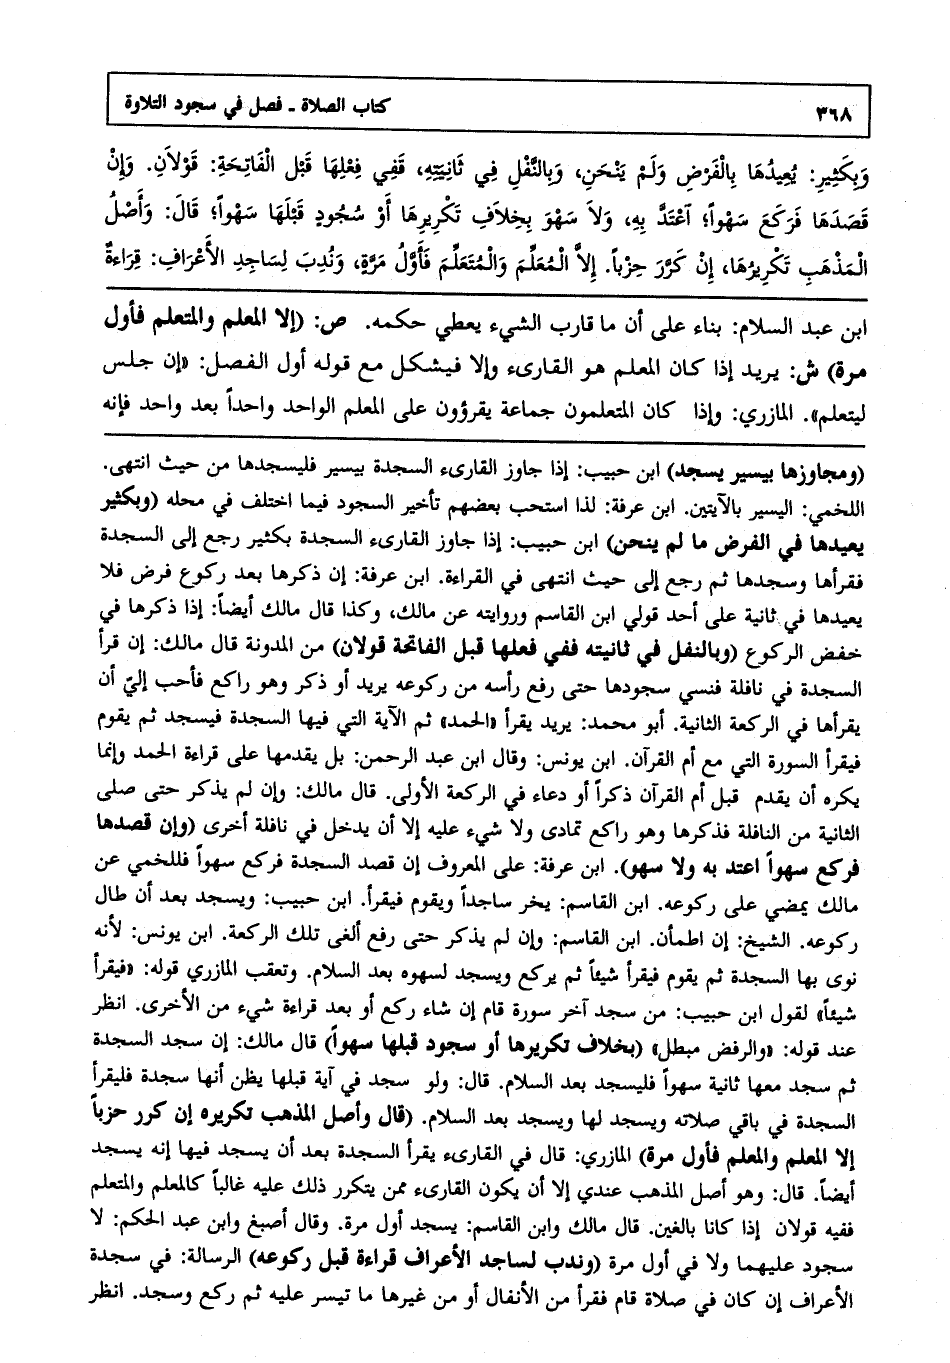 ٣٦٨ كتاب الصلاة ـ فصل في سجود التلاوة
وَبِكَثِيرٍ: يُعِيدُهَا بِالْفَرْضِ وَلَمْ يَنْحَنِ، وَبِالنَّفْلِ فِي ثَانِيَتِهِ، فَفِي فِعْلِهَا قَبْلِ الْفَاتِحَةِ: قَوْلاَنِ. وَإِنْ
قَصَدَهَا فَرَكَعَ سَهْواً؛ اعْتَدَّ بِهِ، وَلاَ سَهْوَ بِخِلاَفِ تَكْرِيرِهَا أَوْ سُجُودٍ قَبْلَهَا سَهْواً؛ قَالَ: وَأَصْلُ
الْمَذْهَبِ تَكْرِيرُهَا، إِنْ كَرَّرَ حِزْباً. إِلاَّ الْمُعَلِّمَ وَالْمُتَعَلِّمَ فَأَوَّلُ مَرَّةٍ، وَنُدِبَ لِسَاجِدِ الأَعْرَافِ: قِرَاءَةٌ
ابن عبد السلام: بناء على أن ما قارب الشيء يعطي حكمه. ص: (إلا المعلم والمتعلم فأول
مرة) ش: يريد إذا كان المعلم هو القارىء وإلا فيشكل مع قوله أول الفصل: «إن جلس
ليتعلم». المازري: وإذا كان المتعلمون جماعة يقرؤون على المعلم الواحد واحداً بعد واحد فإنه
(ومجاوزها بيسير يسجد) ابن حبيب: إذا جاوز القارىء السجدة بيسير فليسجدها من حيث انتهى.
اللخمي: اليسير بالآيتين. ابن عرفة: لذا استحب بعضهم تأخير السجود فيما اختلف في محله (وبكثير
يعيدها في الفرض ما لم ينحن) ابن حبيب: إذا جاوز القارىء السجدة بكثير رجع إلى السجدة
فقرأها وسجدها ثم رجع إلى حيث انتهى في القراءة. ابن عرفة: إن ذكرها بعد ركوع فرض فلا
يعيدها في ثانية على أحد قولي ابن القاسم وروايته عن مالك، وكذا قال مالك أيضاً: إذا ذكرها في
خفض الركوع (وبالنفل في ثانيته ففي فعلها قبل الفاتحة قولان) من المدونة قال مالك: إن قرأ
السجدة في نافلة فنسي سجودها حتى رفع رأسه من ركوعه يريد أو ذكر وهو راكع فأحب إليّ أن
يقرأها في الركعة الثانية. أبو محمد: يريد يقرأ «الحمد» ثم الآية التي فيها السجدة فيسجد ثم يقوم
فيقرأ السورة التي مع أم القرآن. ابن يونس: وقال ابن عبد الرحمن: بل يقدمها على قراءة الحمد وإنما
يكره أن يقدم قبل أم القرآن ذكراً أو دعاء في الركعة الأولى. قال مالك: وإن لم يذكر حتى صلى
الثانية من النافلة فذكرها وهو راكع تمادى ولا شيء عليه إلا أن يدخل في نافلة أخرى (وإن قصدها
فركع سهواً اعتد به ولا سهو). ابن عرفة: على المعروف إن قصد السجدة فركع سهواً فللخمي عن
مالك يمضي على ركوعه. ابن القاسم: يخر ساجداً ويقوم فيقرأ. ابن حبيب: ويسجد بعد أن طال
ركوعه. الشيخ: إن اطمأن. ابن القاسم: وإن لم يذكر حتى رفع ألغى تلك الركعة. ابن يونس: لأنه
نوى بها السجدة ثم يقوم فيقرأ شيئاً ثم يركع ويسجد لسهوه بعد السلام. وتعقب المازري قوله: «فيقرأ
شيئاً» لقول ابن حبيب: من سجد آخر سورة قام إن شاء ركع أو بعد قراءة شيء من الأخرى. انظر
عند قوله: «والرفض مبطل» (بخلاف تكريرها أو سجود قبلها سهواً) قال مالك: إن سجد السجدة
ثم سجد معها ثانية سهواً فليسجد بعد السلام. قال: ولو سجد في آية قبلها يظن أنها سجدة فليقرأ
السجدة في باقي صلاته ويسجد لها ويسجد بعد السلام. (قال وأصل المذهب تكريره إن كرر حزباً
إلا المعلم والمعلم فأول مرة) المازري: قال في القارىء يقرأ السجدة بعد أن يسجد فيها إنه يسجد
أيضاً. قال: وهو أصل المذهب عندي إلا أن يكون القارىء ممن يتكرر ذلك عليه غالباً كالمعلم والمتعلم
ففيه قولان إذا كانا بالغين. قال مالك وابن القاسم: يسجد أول مرة. وقال أصبغ وابن عبد الحكم: لا
سجود عليهما ولا في أول مرة (وندب لساجد الأعراف قراءة قبل ركوعه) الرسالة: في سجدة
الأعراف إن كان في صلاة قام فقرأ من الأنفال أو من غيرها ما تيسر عليه ثم ركع وسجد. انظر